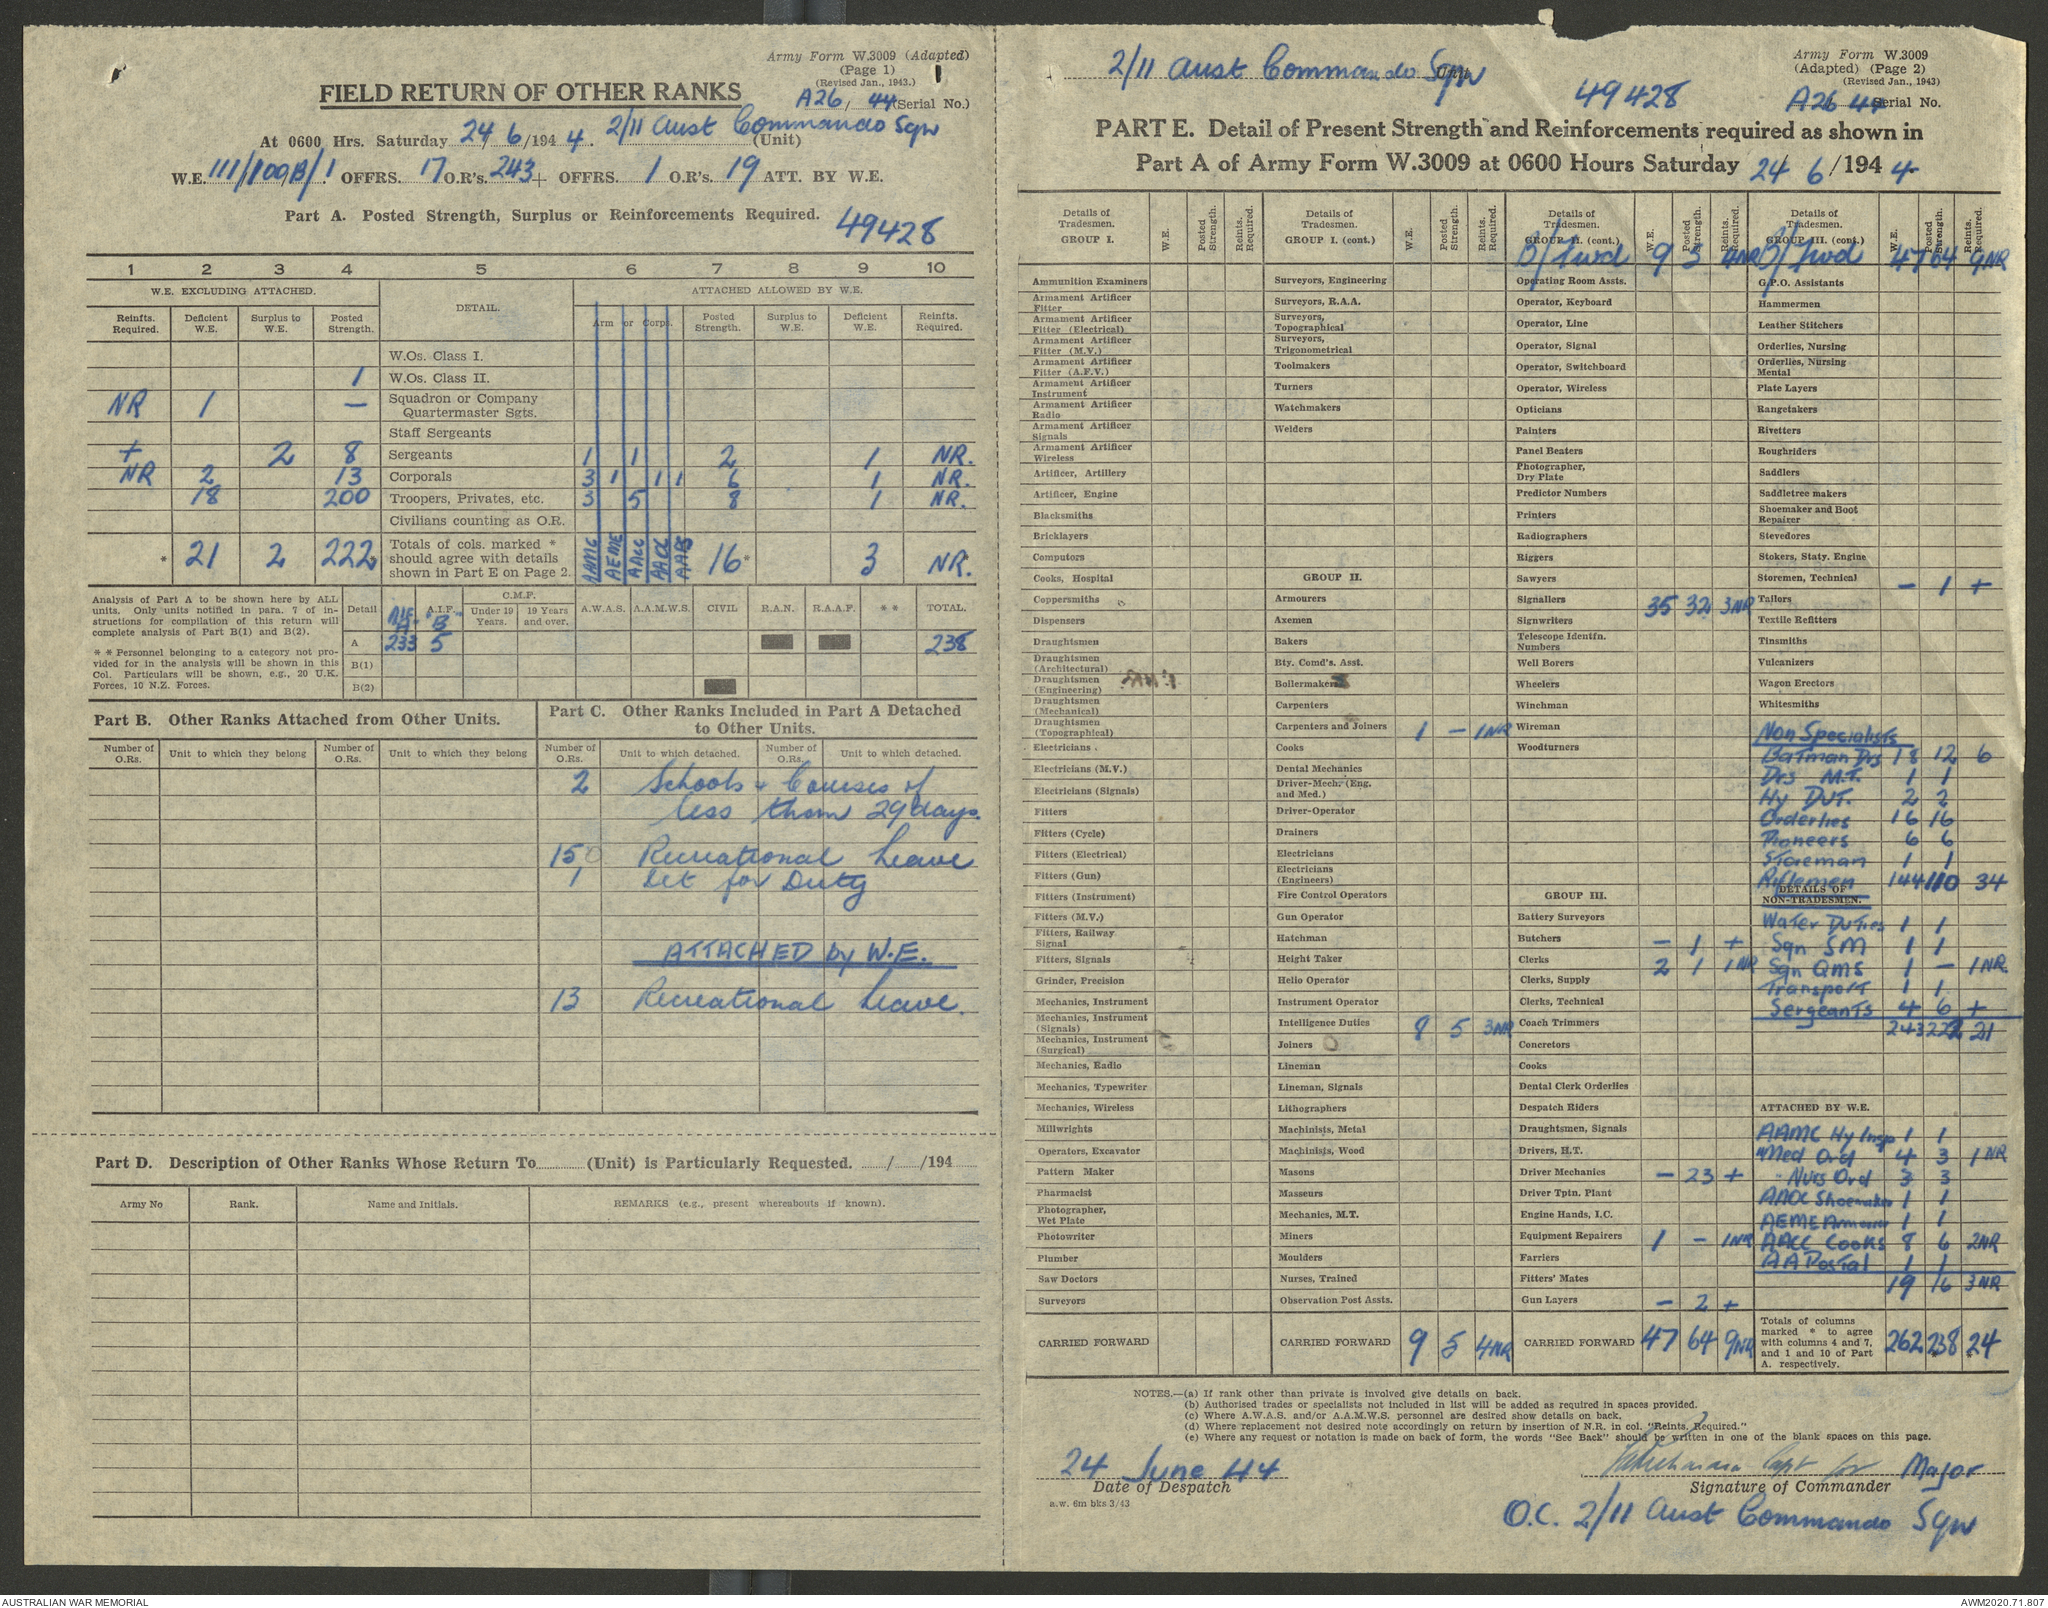 Army Form W.3009 (Adapted)
(Page 1)
(Revised Jan., 1943.)
FIELD RETURN OF OTHER RANKS
A26/44 (Serial No.)
At 0600 Hrs. Saturday 24/6/1944. 2/11 Aust Commando Sqn (Unit)
W.E. 111/100B/1 OFFRS. 17 O.R's. 243 + OFFRS. 1 O.R's. 19 ATT. BY W.E.
Part A. Posted Strength, Surplus or Reinforcements Required. 49428
1 2 3 4 5 6 7 8 9 10
W.E. EXCLUDING ATTACHED. DETAIL. ATTACHED ALLOWED BY W.E.
Reinfts. Required. Deficient W.E. Surplus to W.E. Posted Strength. Arm or Corps. Posted Strength. Surplus to W.E. Deficient W.E. Reinfts. Required.
W.Os. Class I.
1 W.Os. Class II.
NR 1 — Squadron or Company Quartermaster Sgts.
Staff Sergeants
+ 2 8 Sergeants 1 1 2 1 NR.
NR 2 13 Corporals 3 1 1 1 6 1 NR.
18 200 Troopers, Privates, etc. 3 5 8 1 NR.
Civilians counting as O.R.
* 21 2 222* Totals of cols. marked * should agree with details shown in Part E on Page 2. AAMC AEME AACC AAOC AAPS 16* 3 NR.*
Analysis of Part A to be shown here by ALL units. Only units notified in para. 7 of instructions for compilation of this return will complete analysis of Part B(1) and B(2).
* * Personnel belonging to a category not provided for in the analysis will be shown in this Col. Particulars will be shown, e.g., 20 U.K. Forces, 10 N.Z. Forces.
Detail AIF A A.I.F. B C.M.F. Under 19 Years. 19 Years and over. A.W.A.S. A.A.M.W.S. CIVIL R.A.N. R.A.A.F. * * TOTAL.
A 233 5 238
B(1)
B(2)
Part B. Other Ranks Attached from Other Units.
Part C. Other Ranks Included in Part A Detached to Other Units.
Number of O.Rs. Unit to which they belong Number of O.Rs. Unit to which they belong Number of O.Rs. Unit to which detached. Number of O.Rs. Unit to which detached.
2 Schools & Courses of
less than 29 days.
150 Recreational Leave
1 Det for Duty
ATTACHED by W.E.
13 Recreational Leave.
Part D. Description of Other Ranks Whose Return To (Unit) is Particularly Requested. / /194
Army No Rank. Name and Initials. REMARKS (e.g., present whereabouts if known).
2/11 Aust Commando Sqn Unit
49428
Army Form W.3009
(Adapted) (Page 2)
(Revised Jan., 1943)
A26 44 Serial No.
PART E. Detail of Present Strength and Reinforcements required as shown in
Part A of Army Form W.3009 at 0600 Hours Saturday 24/6/1944
Details of Tradesmen. GROUP I. W.E. Posted Strength. Reints. Required.
Ammunition Examiners
Armament Artificer Fitter
Armament Artificer Fitter (Electrical)
Armament Artificer Fitter (M.V.)
Armament Artificer Fitter (A.F.V.)
Armament Artificer Instrument
Armament Artificer Radio
Armament Artificer Signals
Armament Artificer Wireless
Artificer, Artillery
Artificer, Engine
Blacksmiths
Bricklayers
Computors
Cooks, Hospital
Coppersmiths
Dispensers
Draughtsmen
Draughtsmen (Architectural)
Draughtsmen (Engineering)
Draughtsmen (Mechanical)
Draughtsmen (Topographical)
Electricians
Electricians (M.V.)
Electricians (Signals)
Fitters
Fitters (Cycle)
Fitters (Electrical)
Fitters (Gun)
Fitters (Instrument)
Fitters (M.V.)
Fitters, Railway Signal
Fitters, Signals
Grinder, Precision
Mechanics, Instrument
Mechanics, Instrument (Signals)
Mechanics, Instrument (Surgical)
Mechanics, Radio
Mechanics, Typewriter
Mechanics, Wireless
Millwrights
Operators, Excavator
Pattern Maker
Pharmacist
Photographer, Wet Plate
Photowriter
Plumber
Saw Doctors
Surveyors
CARRIED FORWARD
Details of Tradesmen. GROUP I. (cont.) W.E. Posted Strength. Reints. Required.
Surveyors, Engineering
Surveyors, R.A.A.
Surveyors, Topographical
Surveyors, Trigonometrical
Toolmakers
Turners
Watchmakers
Welders
GROUP II.
Armourers
Axemen
Bakers
Bty. Comd's. Asst.
Boilermakers
Carpenters
Carpenters and Joiners 1 — 1NR
Cooks
Dental Mechanics
Driver-Mech. (Eng. and Med.)
Driver-Operator
Drainers
Electricians
Electricians (Engineers)
Fire Control Operators
Gun Operator
Hatchman
Height Taker
Helio Operator
Instrument Operator
Intelligence Duties 8 5 3NR
Joiners
Lineman
Lineman, Signals
Lithographers
Machinists, Metal
Machinists, Wood
Masons
Masseurs
Mechanics, M.T.
Miners
Moulders
Nurses, Trained
Observation Post Assts.
CARRIED FORWARD 9 5 4NR
Details of Tradesmen. GROUP II. (cont.) W.E. Posted Strength. Reints. Required.
B/Fwd 9 5 4NR
Operating Room Assts.
Operator, Keyboard
Operator, Line
Operator, Signal
Operator, Switchboard
Operator, Wireless
Opticians
Painters
Panel Beaters
Photographer, Dry Plate
Predictor Numbers
Printers
Radiographers
Riggers
Sawyers
Signallers 35 32 3NR
Signwriters
Telescope Identfn. Numbers
Well Borers
Wheelers
Winchman
Wireman
Woodturners
GROUP III.
Battery Surveyors
Butchers — 1 +
Clerks 2 1 1NR
Clerks, Supply
Clerks, Technical
Coach Trimmers
Concretors
Cooks
Dental Clerk Orderlies
Despatch Riders
Draughtsmen, Signals
Drivers, H.T.
Driver Mechanics — 23 +
Driver Tptn. Plant
Engine Hands, I.C.
Equipment Repairers 1 — 1NR
Farriers
Fitters' Mates
Gun Layers — 2 +
CARRIED FORWARD 47 64 9NR
Details of Tradesmen. GROUP III. (cont.) W.E. Posted Strength. Reints. Required.
B/Fwd 47 64 9NR
G.P.O. Assistants
Hammermen
Leather Stitchers
Orderlies, Nursing
Orderlies, Nursing Mental
Plate Layers
Rangetakers
Rivetters
Roughriders
Saddlers
Saddletree makers
Shoemaker and Boot Repairer
Stevedores
Stokers, Staty. Engine
Storemen, Technical — 1 +
Tailors
Textile Refitters
Tinsmiths
Vulcanizers
Wagon Erectors
Whitesmiths
Non Specialists
Batman Drs 18 12 6
Drs M.T. 1 1
Hy Dut. 2 2
Orderlies 16 16
Pioneers 6 6
Storeman 1 1
Riflemen 144 110 34
DETAILS OF NON-TRADESMEN.
Water Duties 1 1
Sqn SM 1 1
Sqn QMS 1 — 1NR
Transport 1 1
Sergeants 4 6 +
243 222 21
ATTACHED BY W.E.
AAMC Hy Insp 1 1
" Med Ord 4 3 1NR
" Nurs Ord 3 3
AAOC Shoemaker 1 1
AEME Armourer 1 1
AACC Cooks 8 6 2NR
AA Postal 1 1
19 16 3NR
Totals of columns marked * to agree with columns 4 and 7, and 1 and 10 of Part A. respectively. 262 238* 24*
NOTES.—(a) If rank other than private is involved give details on back.
(b) Authorised trades or specialists not included in list will be added as required in spaces provided.
(c) Where A.W.A.S. and/or A.A.M.W.S. personnel are desired show details on back.
(d) Where replacement not desired note accordingly on return by insertion of N.R. in col. "Reints. Required."
(e) Where any request or notation is made on back of form, the words "See Back" should be written in one of the blank spaces on this page.
24 June 44
Date of Despatch
Capt for Major
Signature of Commander
a.w. 6m bks 3/43
O.C. 2/11 Aust Commando Sqn
AUSTRALIAN WAR MEMORIAL
AWM2020.71.807